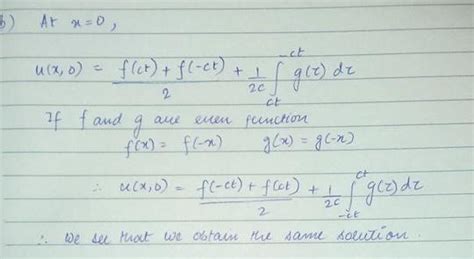 b) At x=0,
u(x,0) = f(ct) + f(-ct) / 2 + 1/2c ∫_{ct}^{-ct} g(τ) dτ
If f and g are even function
f(x) = f(-x) g(x) = g(-x)
∴ u(x,0) = f(-ct) + f(ct) / 2 + 1/2c ∫_{-ct}^{ct} g(τ) dτ
∴ we see that we obtain the same solution.